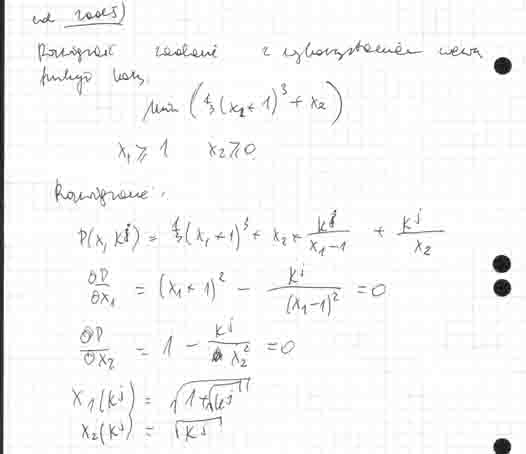 Rozwiązać zadanie z wykorzystaniem wewn.
funkcji kary
min (1/3 (x₂ + 1)³ + x₂)
x₁ ⩾ 1 x₂ ⩾ 0
Rozwiązanie:
P(x, Kʲ) = 1/3 (x₁ + 1)³ + x₂ + Kʲ/(x₁ - 1) + Kʲ/x₂
∂P/∂x₁ = (x₁ + 1)² - Kʲ/(x₁ - 1)² = 0
∂P/∂x₂ = 1 - Kʲ/x₂² = 0
x₁(Kʲ) = √(1 + √Kʲ)
x₂(Kʲ) = √Kʲ